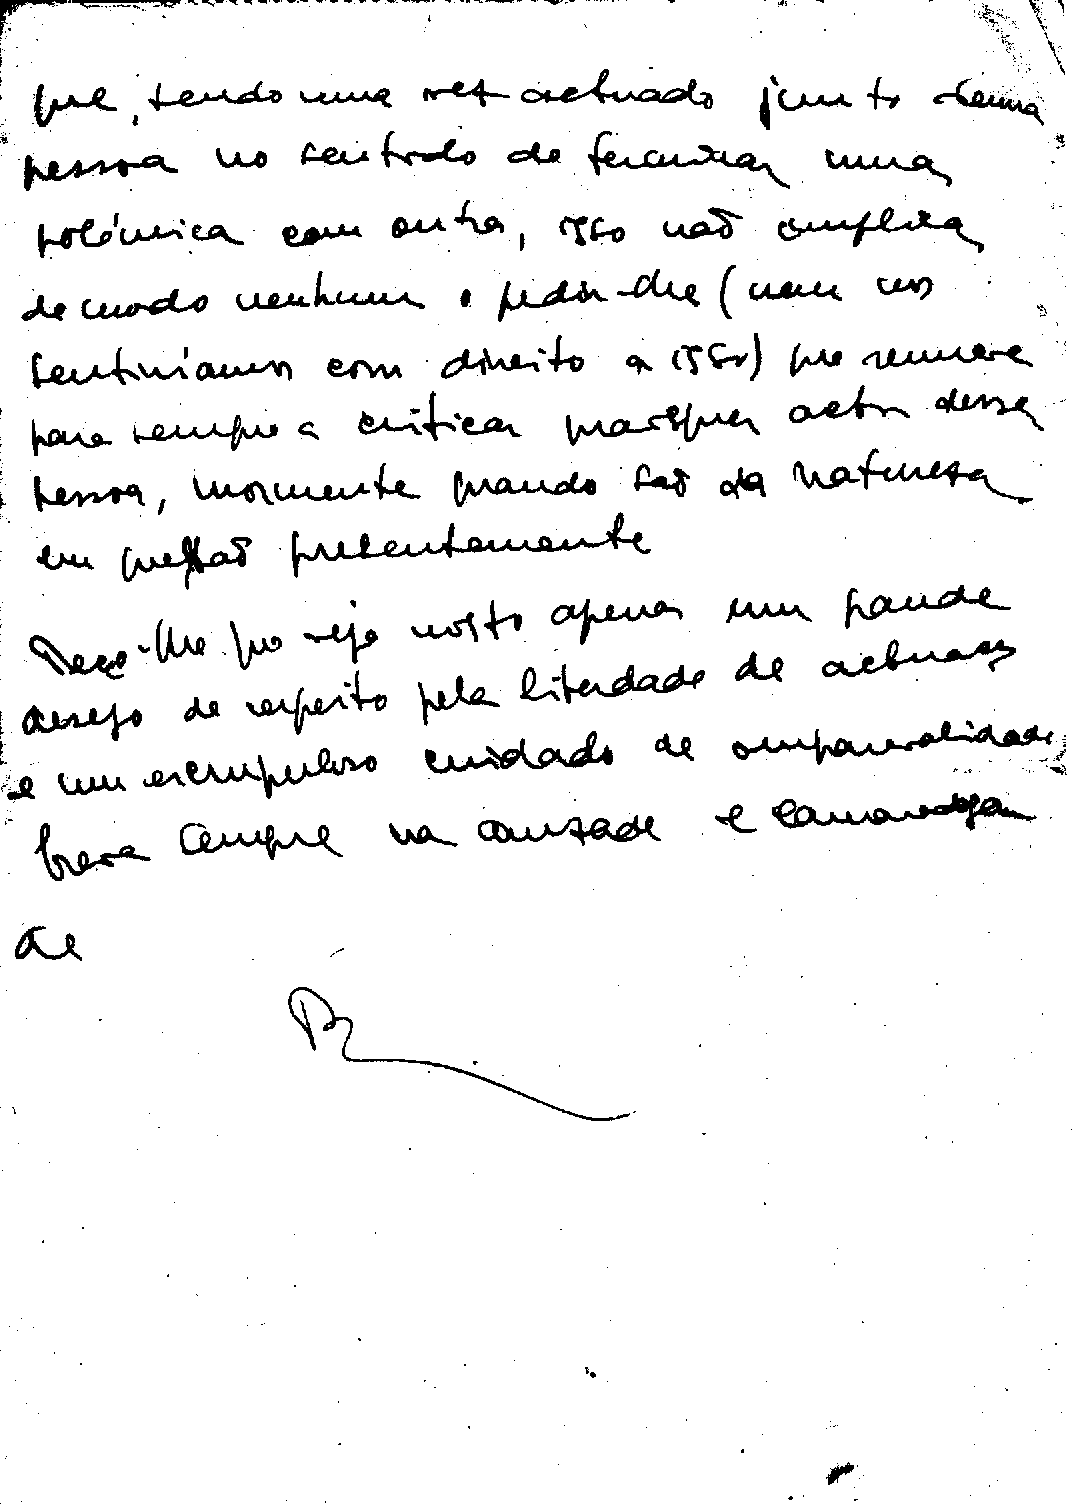 que, tendo uma vez actuado junto duma
pessoa no sentido de terminar uma
polémica com outra, isso não implica
de modo nenhum o pedir-lhe (nem nos
sentiríamos com direito a isso) que renuncie
para sempre a criticar quaisquer actos dessa
pessoa, mormente quando são da natureza
em questão presentemente
Peço-lhe que veja nisto apenas um grande
desejo de respeito pela liberdade de actuação
e um escrupuloso cuidado de imparcialidade
Creia sempre na amizade e camaradagem
de